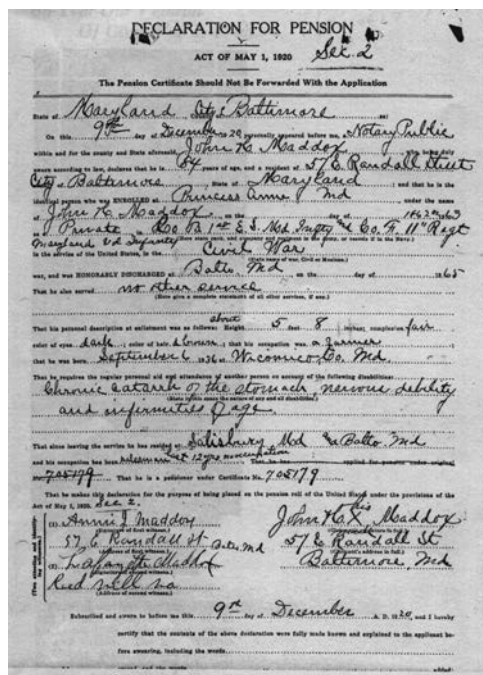 DECLARATION FOR PENSION
ACT OF MAY 1, 1920 Sec. 2
The Pension Certificate Should Not Be Forwarded With the Application
State of Maryland City of Baltimore ss:
On this 9th day of December 20 personally appeared before me, Notary Public
within and for the county and State aforesaid, John H. Maddox who being duly
sworn according to law, declares that he is 84 years of age, and a resident of 57 E. Randall Street
City of Baltimore, State of Maryland; and that he is the
identical person who was ENROLLED at Princess Anne Md under the name
of John H. Maddox, on the day of 1862
as a Private Co B 1st E. S. Md Infty and Co. F. 11th Regt
Maryland Vol Infantry (Here state rank, and company and regiment in the Army, or vessels if in the Navy.)
in the service of the United States, in the Civil War
(State name of war, Civil or Mexican.)
war, and was HONORABLY DISCHARGED at Balto Md, on the day of 1865
That he also served no other service
(Here give a complete statement of all other services, if any.)
That his personal description at enlistment was as follows: Height about 5 feet 8 inches; complexion fair
color of eyes dark; color of hair brown; that his occupation was a farmer
that he was born September 6 1836 at Wicomico Co. Md.
That he requires the regular personal aid and attendance of another person on account of the following disabilities:
Chronic catarrh of the stomach, nervous debility
(State the nature of any and all disabilities.)
and infirmities of age
That since leaving the service he has resided at Salisbury Md and Balto. Md
and his occupation has been last 12 yrs no occupation That he has applied for pension under original
No. 705179 That he is a pensioner under Certificate No. 705179
That he makes this declaration for the purpose of being placed on the pension roll of the United States under the provisions of the
Act of May 1, 1920. Sec 2.
(1) Annie J Maddox John H. X his Maddox
(Signature of first witness.)
57 E Randall St Balto, Md 57 E Randall St
(Address of first witness.) (Claimant's address in full.)
(2) Lafayette Maddox Baltimore, Md
(Signature of second witness.)
Reedville Va
(Address of second witness.)
Subscribed and sworn to before me this 9th day of December A. D. 1920, and I hereby
certify that the contents of the above declaration were fully made known and explained to the applicant be-
fore swearing, including the words
erased, and the words added;